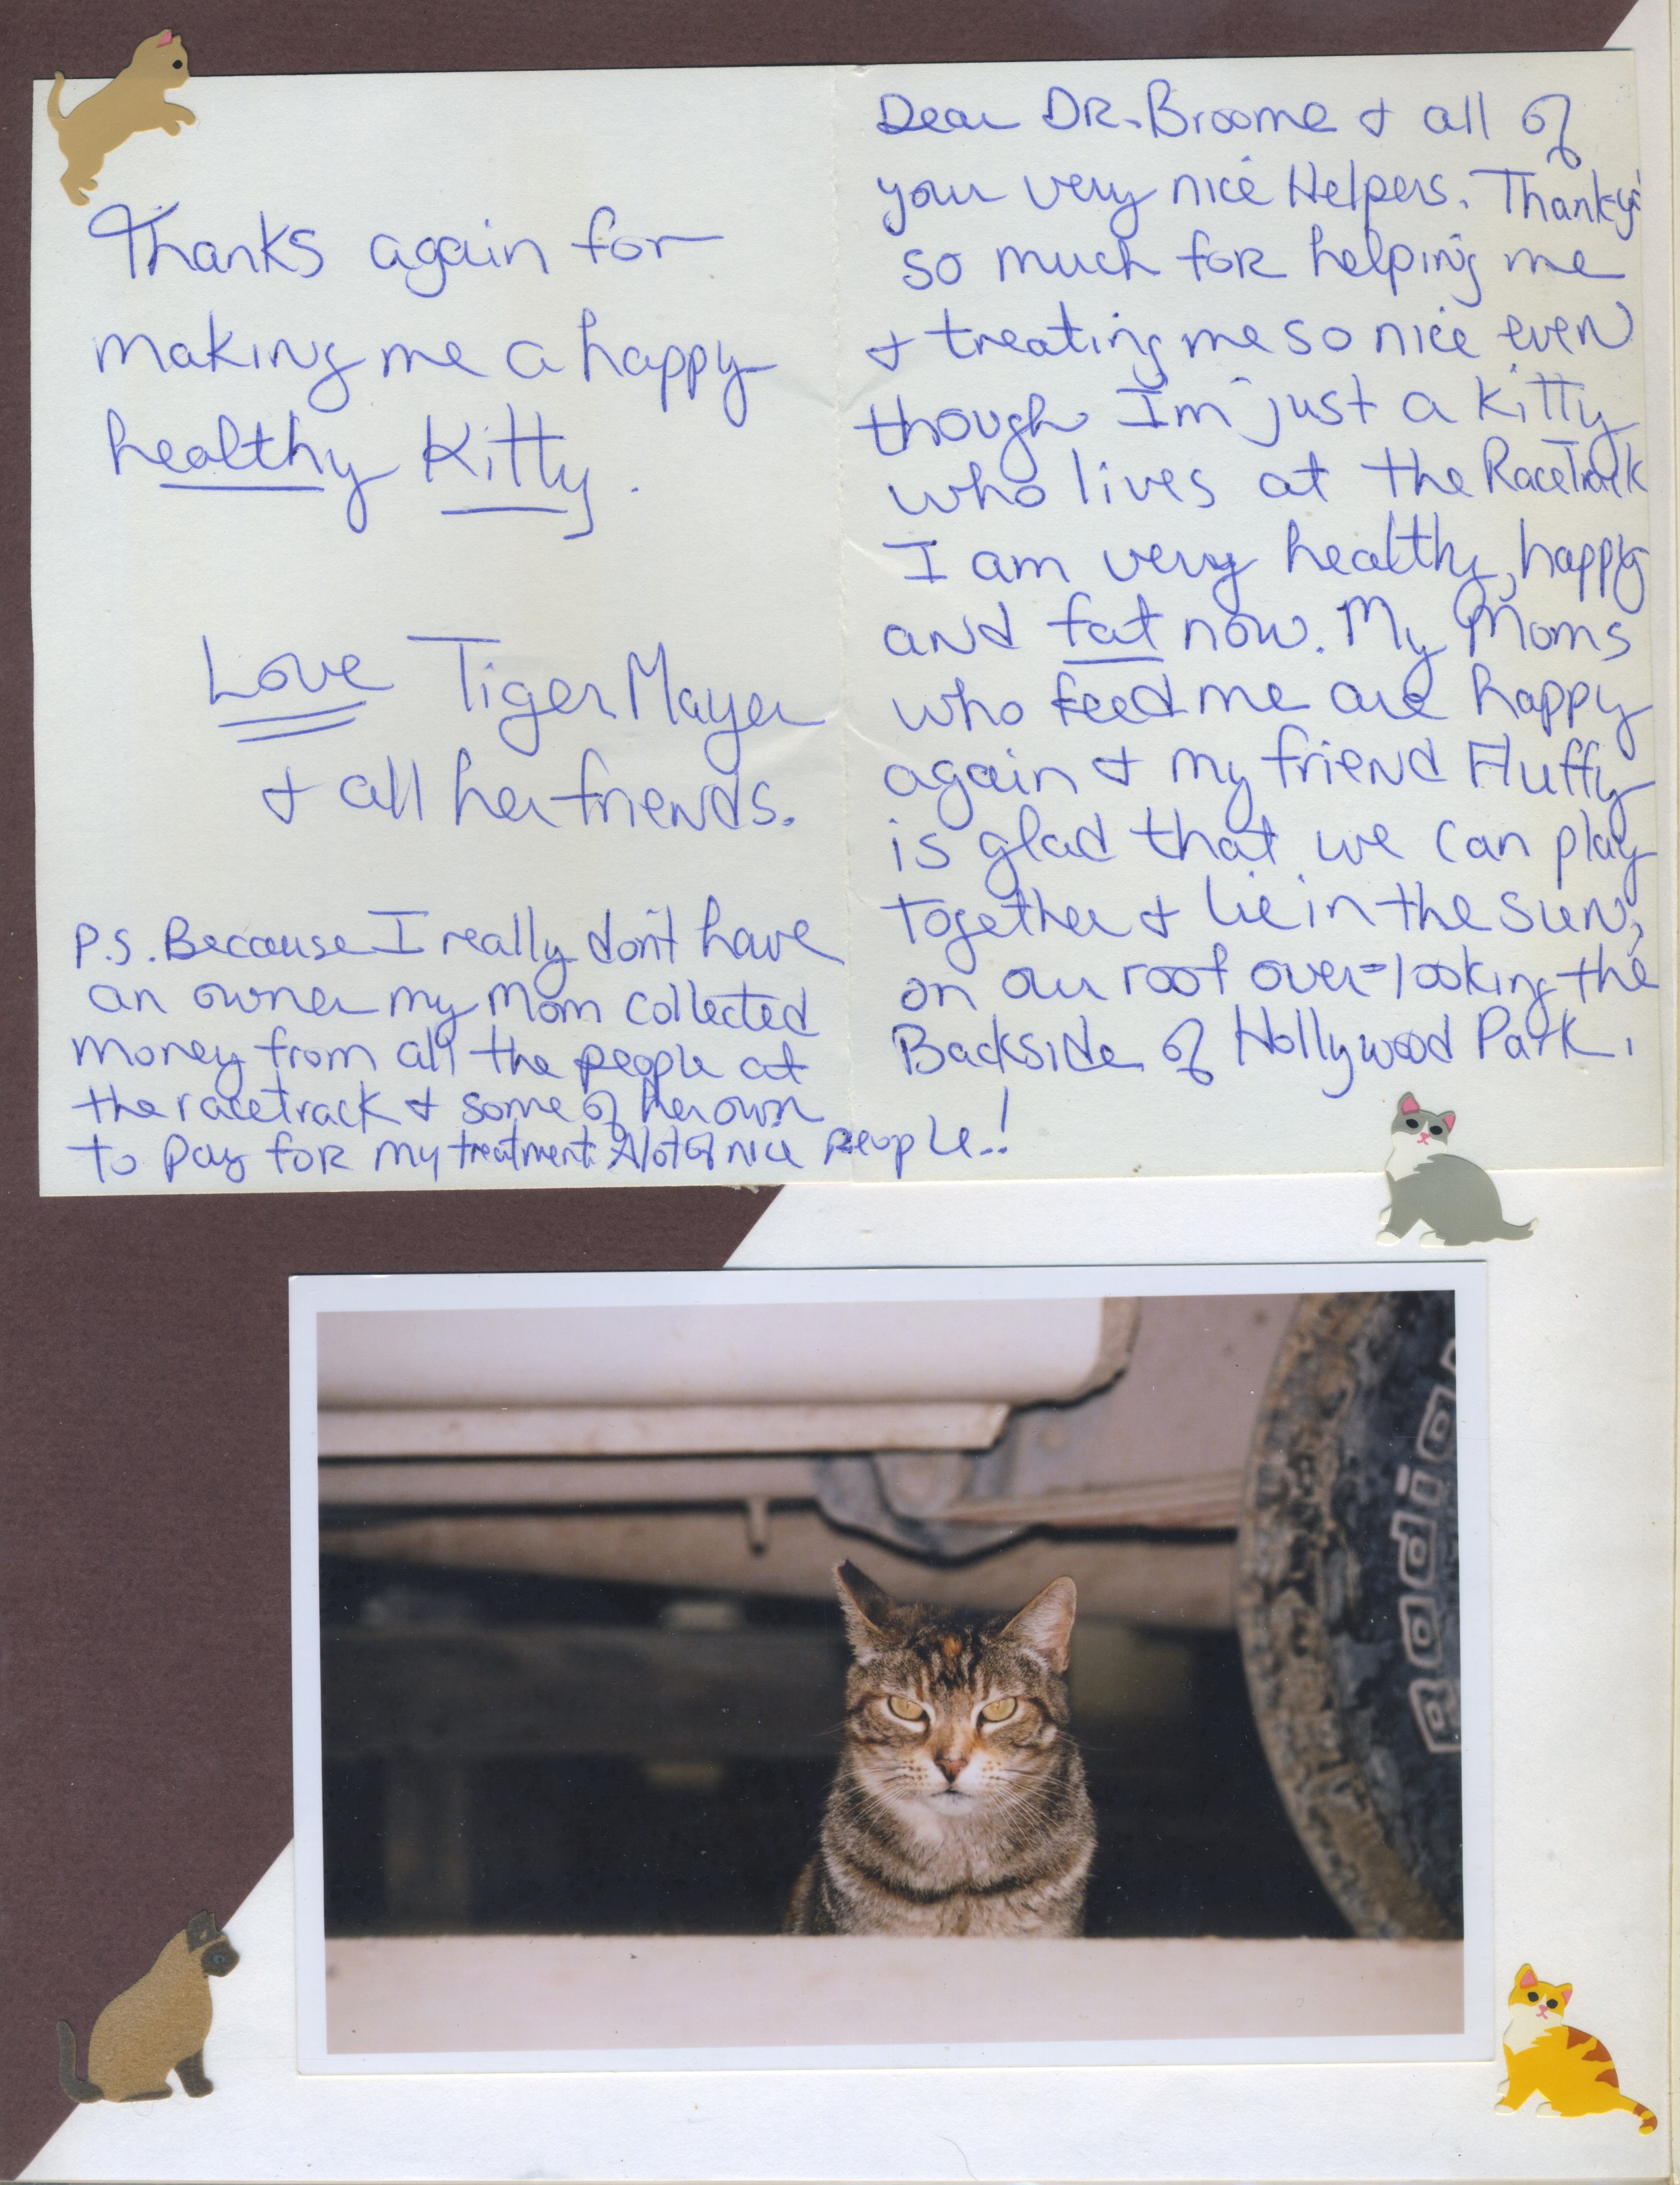 Dear DR. Broome & all of
your very nice Helpers. Thank you
so much for helping me
& treating me so nice even
though I'm just a kitty
who lives at the RaceTrack
I am very healthy, happy
and fat now. My Moms
who feed me are happy
again & my friend Fluffy
is glad that we can play
together & lie in the sun,
on our roof over-looking the
Backside of Hollywood Park.
Thanks again for
making me a happy
healthy Kitty.
Love Tiger Mayer
& all her friends.
P.S. Because I really don't have
an owner my Mom collected
money from all the people at
the racetrack & some of her own
to pay for my treatment. Alot of nice people..!
Radial